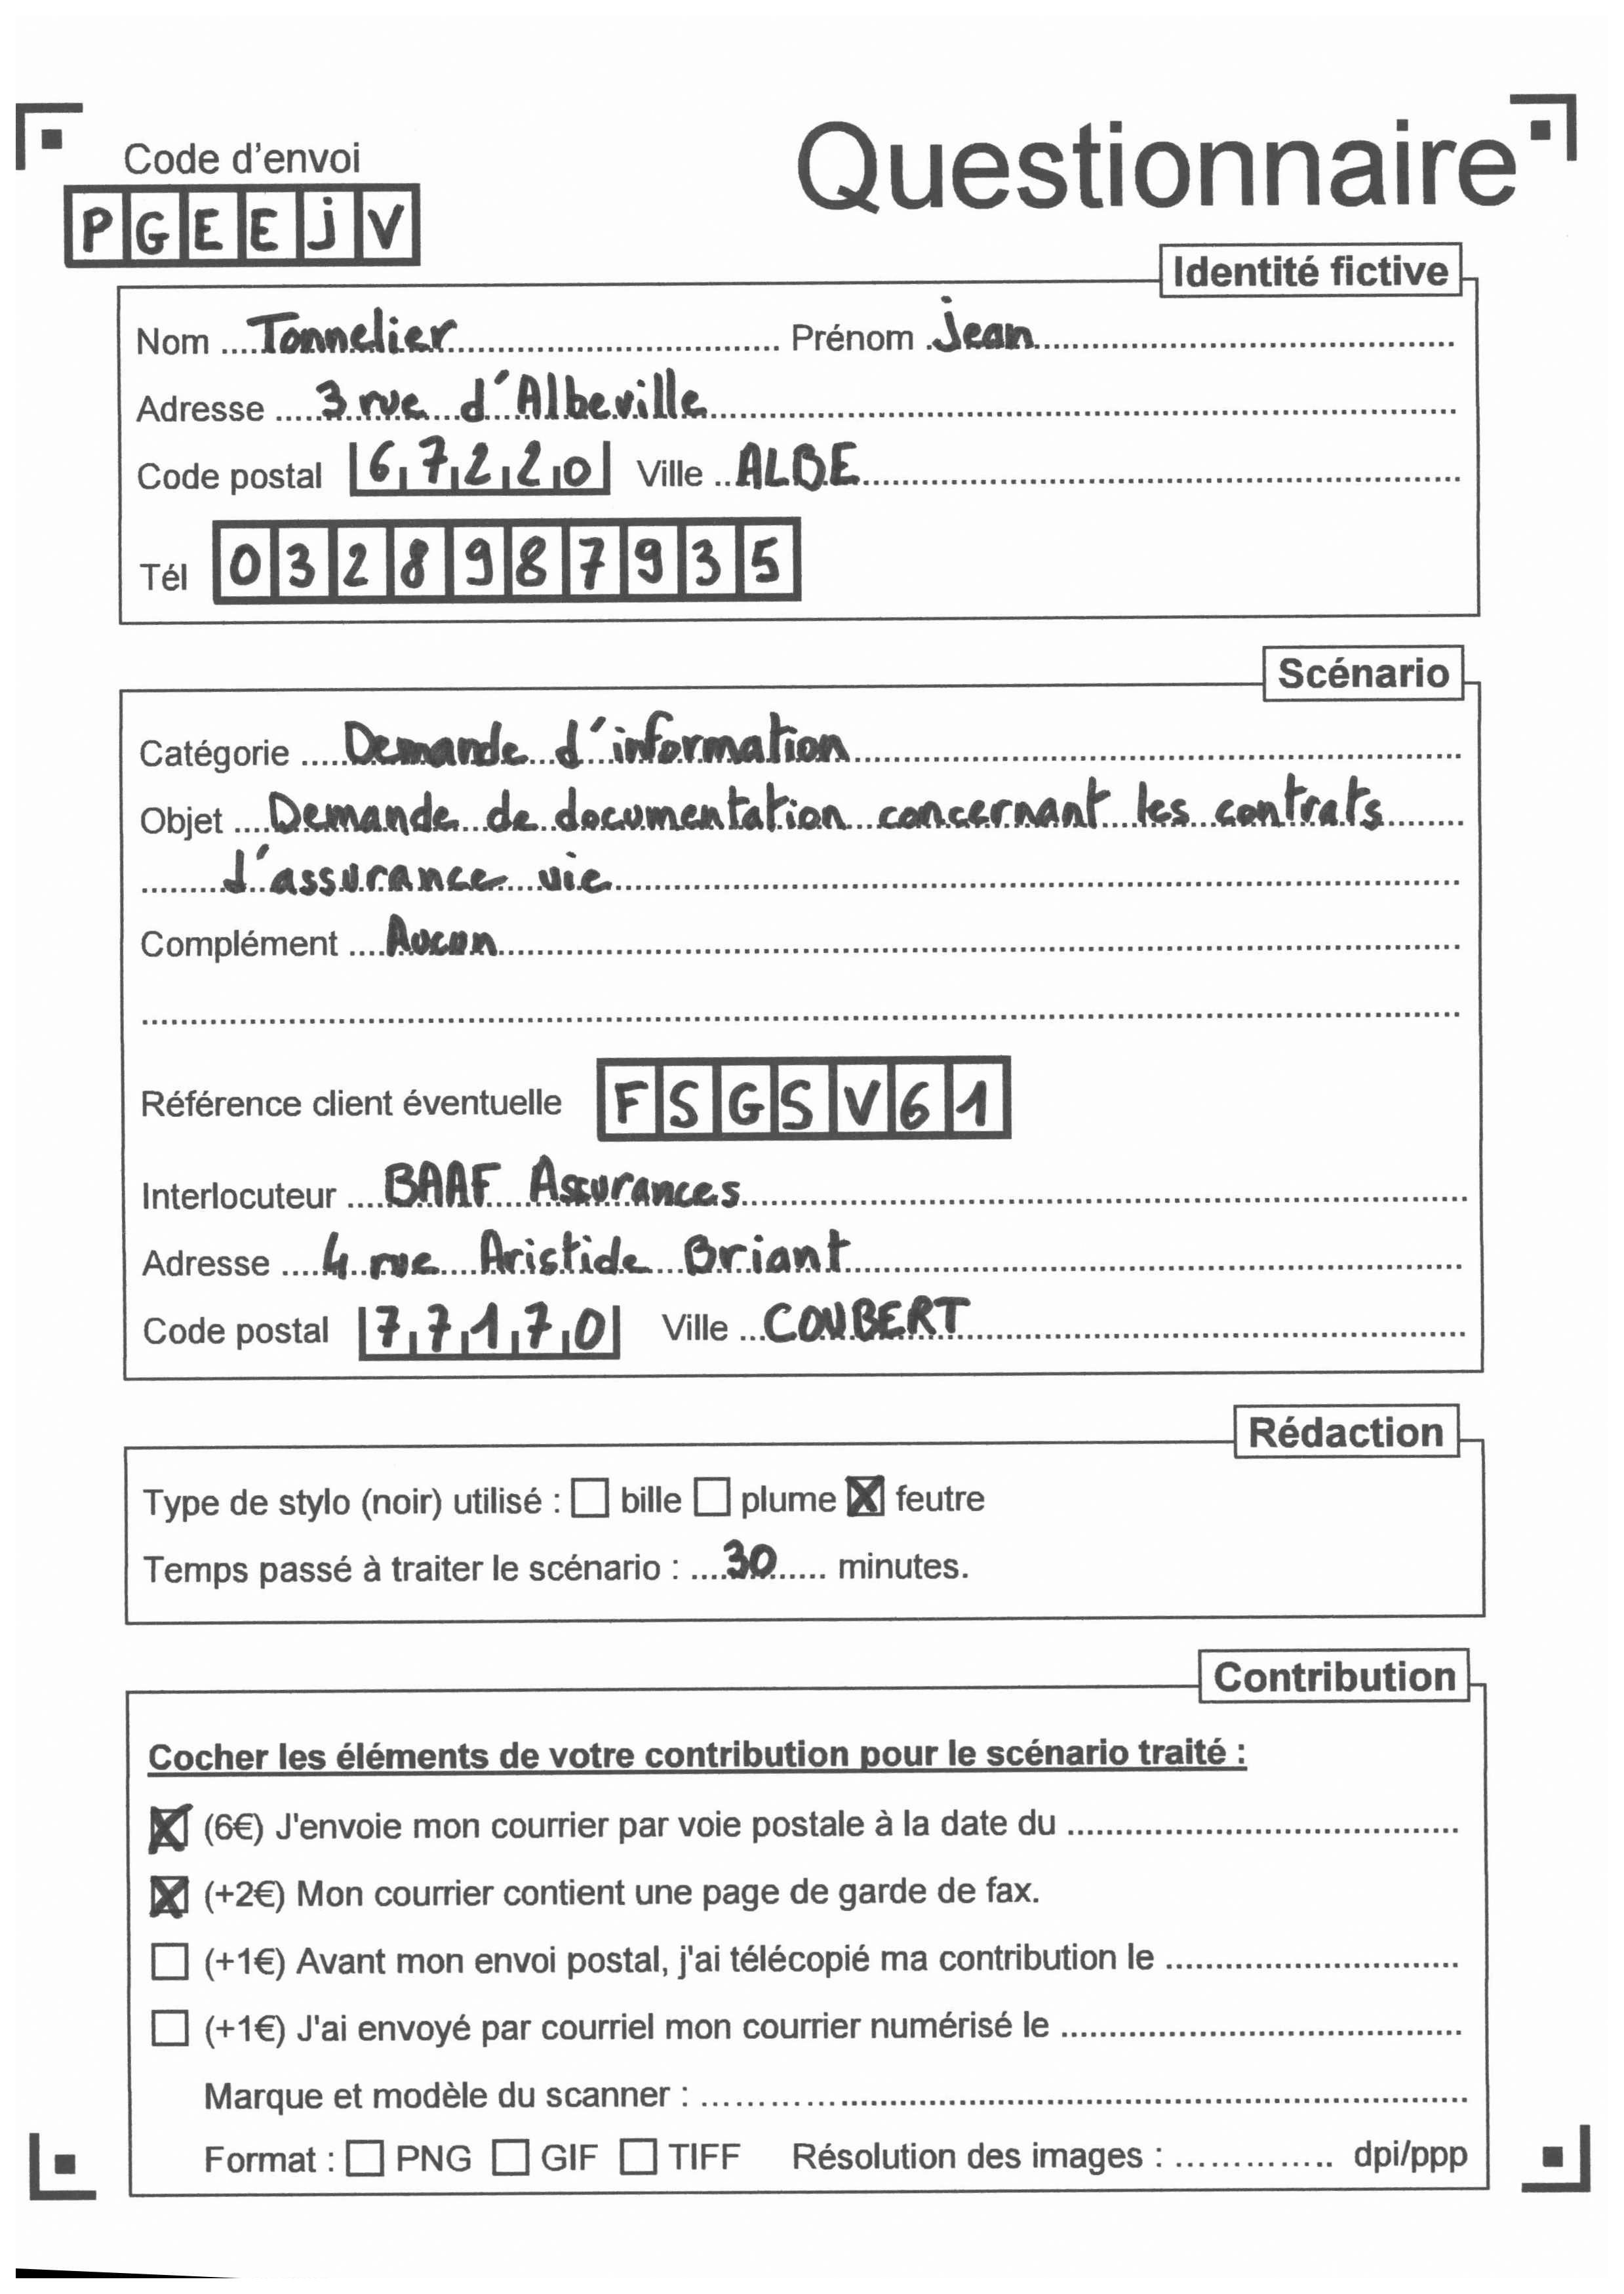 Code d'envoi
Questionnaire
PGEEjV
Identité fictive
Nom Tonnelier Prénom jean
Adresse 3 rue d'Albeville
Code postal 67220 Ville ALBE
Tél 0328987935
Scénario
Catégorie Demande d'information
Objet Demande de documentation concernant les contrats
d'assurance vie
Complément Aucun
Référence client éventuelle FSGSV61
Interlocuteur BAAF Assurances
Adresse 4 rue Aristide Briant
Code postal 77170 Ville COUBERT
Rédaction
Type de stylo (noir) utilisé : bille plume feutre
Temps passé à traiter le scénario : 30 minutes.
Contribution
Cocher les éléments de votre contribution pour le scénario traité :
(6€) J'envoie mon courrier par voie postale à la date du
(+2€) Mon courrier contient une page de garde de fax.
(+1€) Avant mon envoi postal, j'ai télécopié ma contribution le
(+1€) J'ai envoyé par courriel mon courrier numérisé le
Marque et modèle du scanner :
Format : PNG GIF TIFF Résolution des images : dpi/ppp